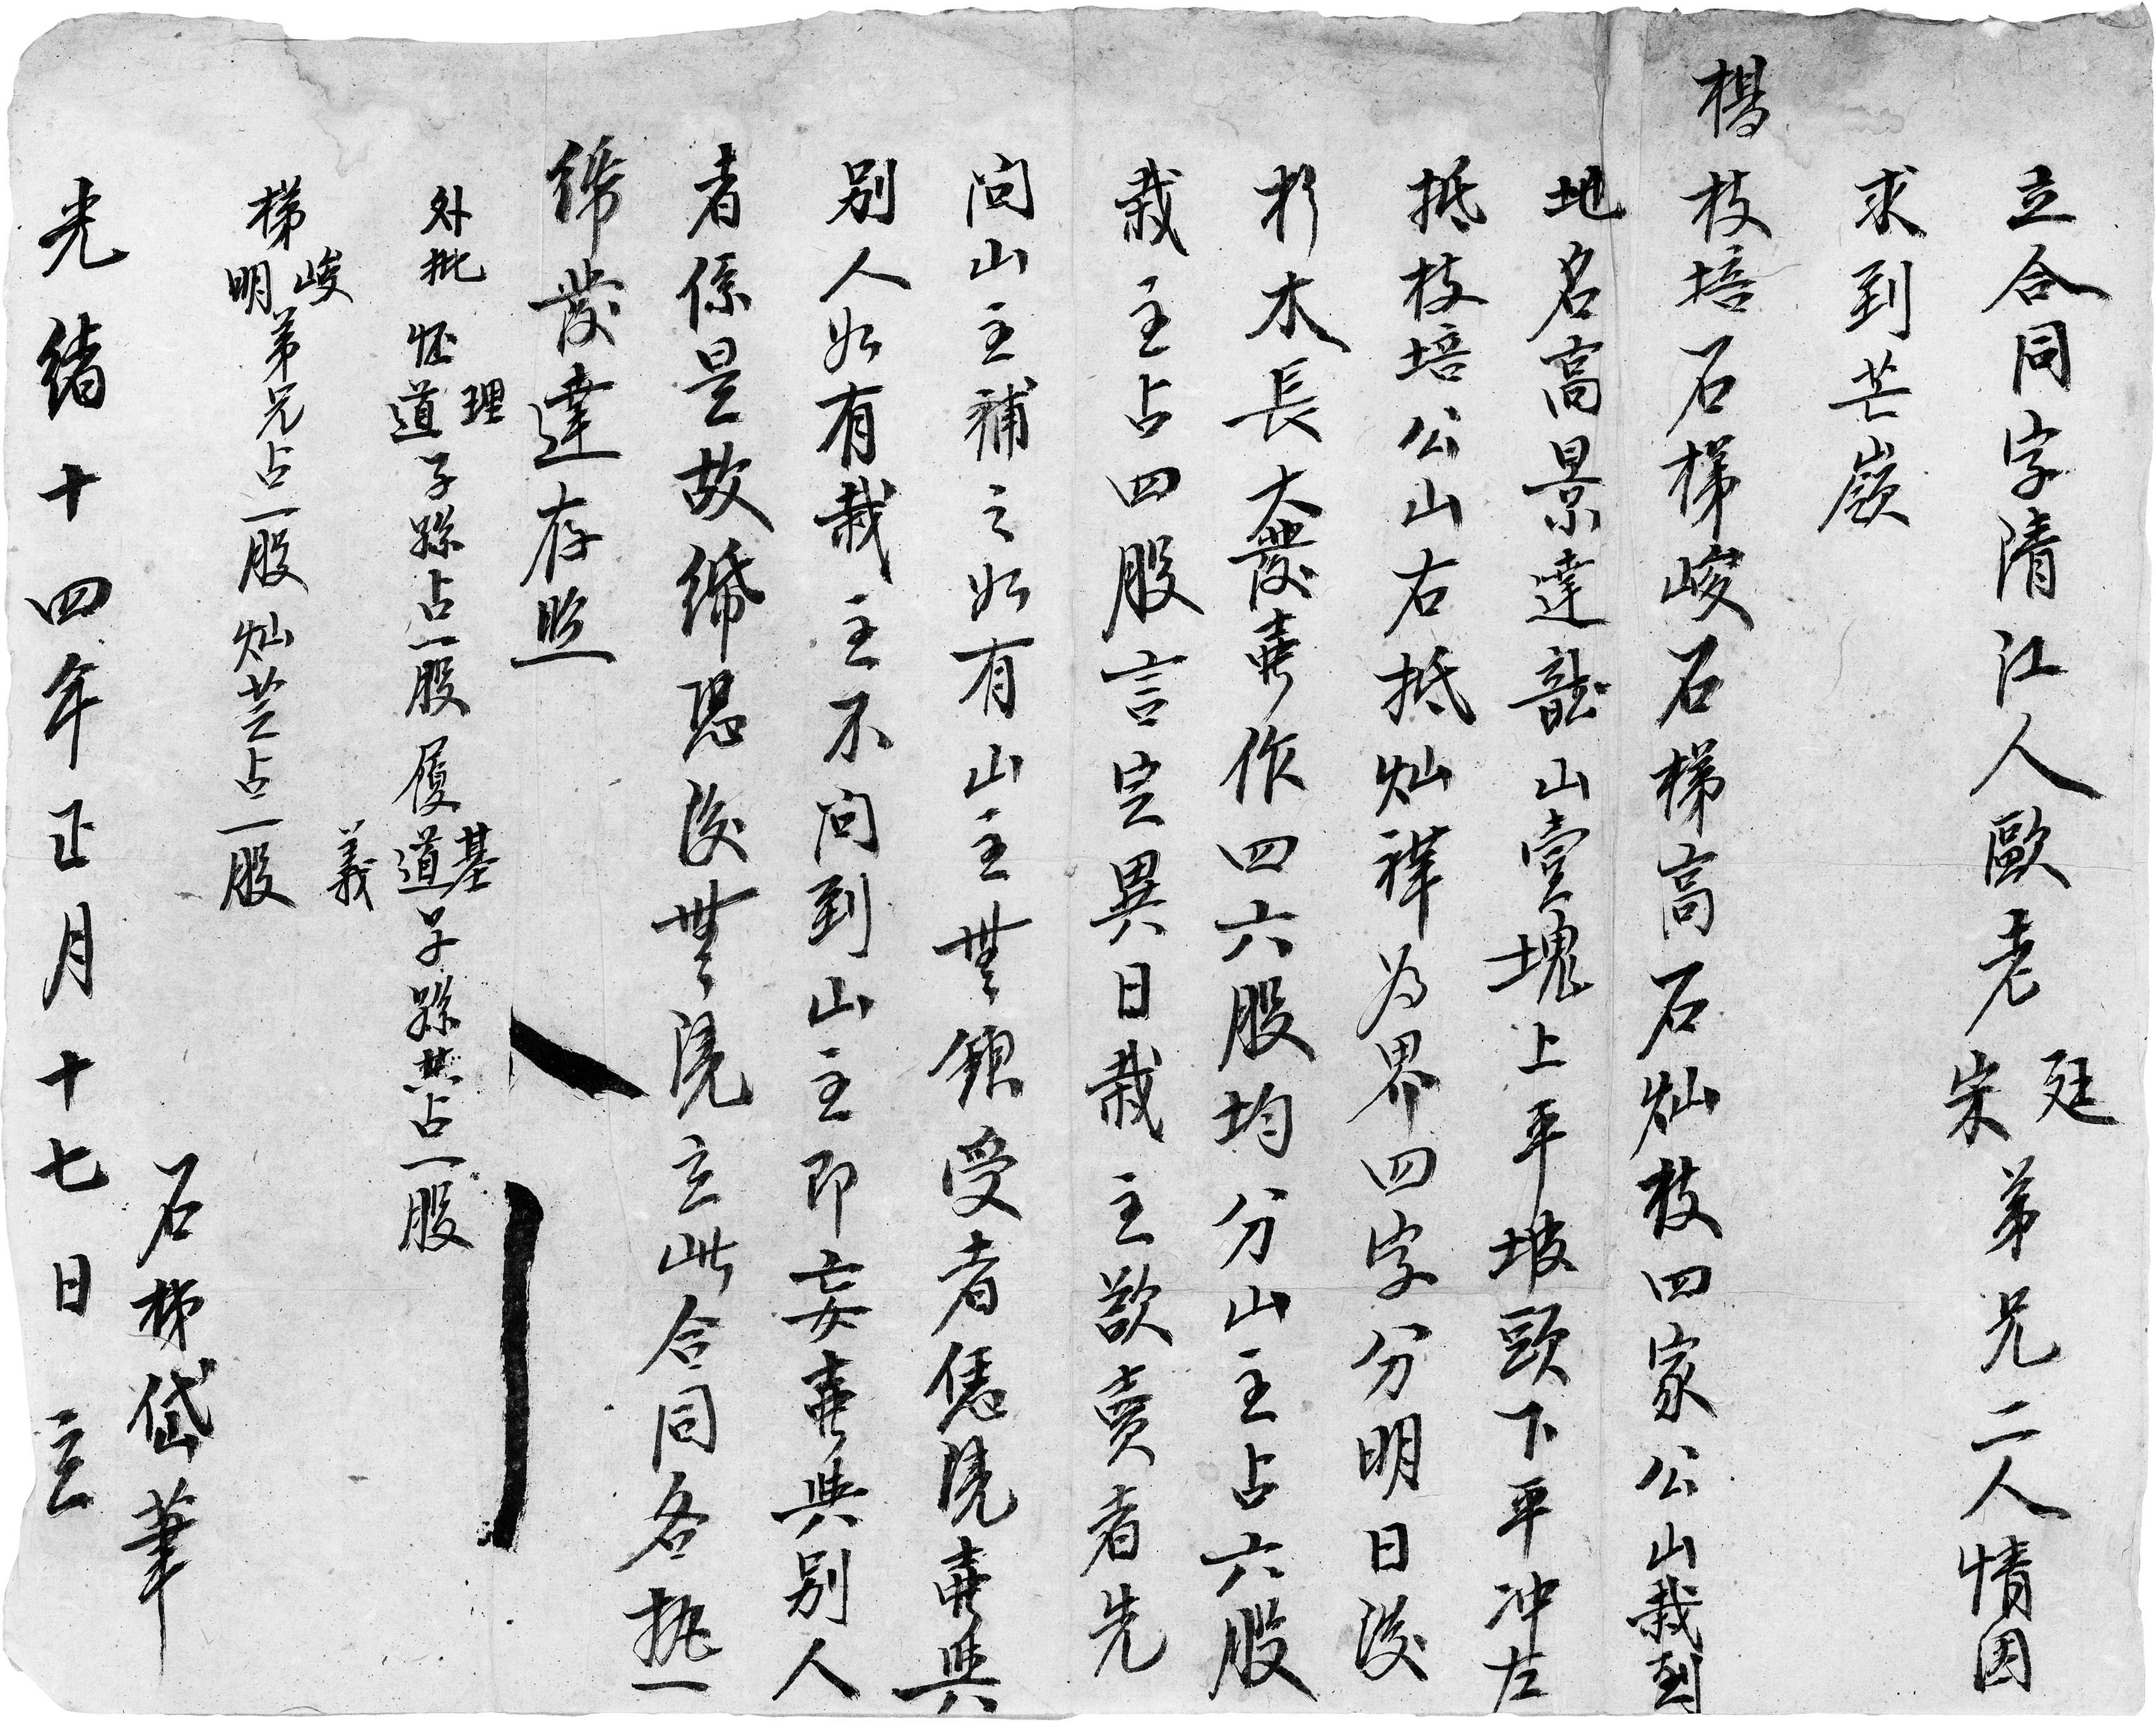 立合同字清江人歐老廷宋弟兄二人情因
求到芒嶺
楊枝培石梯峻石梯高石灿枝四家公山栽到
地名高景達龍山壹塊上平坡頭下平冲左
抵枝培公山右抵灿祥为界四字分明日後
杉木長大發賣作四六股均分山主占六股
栽主占四股言定異日栽主欲賣者先
问山主補之如有山主無銀受者凭憑賣與
别人如有栽主不问到山主即妄賣與别人
者係是故紙恐後無凭立此合同各执一
紙發達存照
外批 恒理道子孫占一股 履基道義子孫共占一股
梯峻明弟兄占一股灿芝占一股
石梯岱筆
光緒十四年正月十七日 立